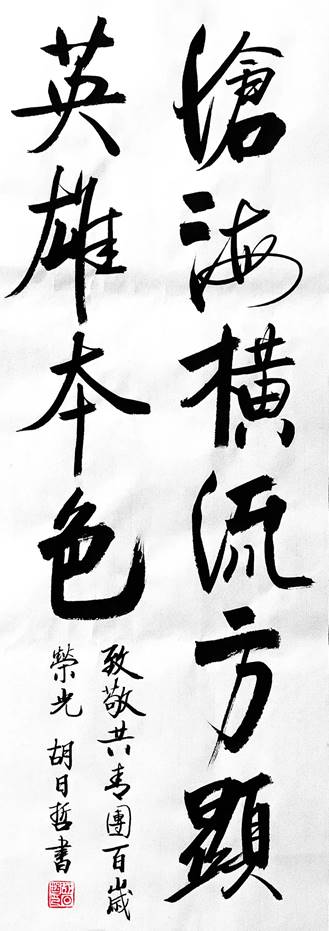 滄海橫流方顯
英雄本色
致敬共青團百歲
榮光 胡日哲書